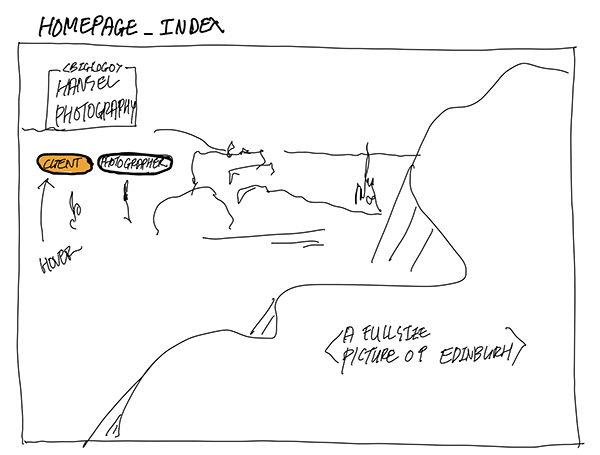 HOMEPAGE_INDEX
<BIGLOGO>
HANSEL
PHOTOGRAPHY
CLIENT PHOTOGRAPHER
HOVER
<A FULLSIZE
PICTURE OF EDINBURH>